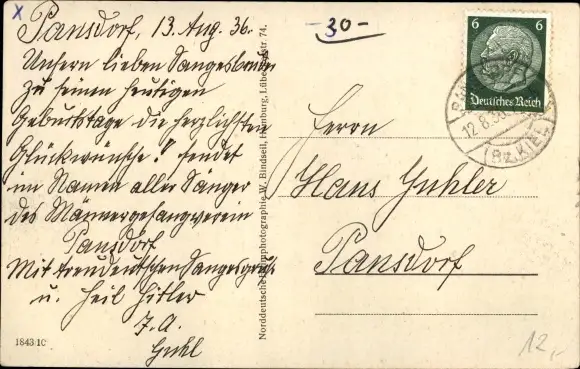 x
Pansdorf, 13. Aug. 36.
Unsern lieben Sangesbruder
zu seinem heutigen
Geburtstage die herzlichsten
Glückwünsche! sendet
im Namen aller Sänger
des Männergesangverein
Pansdorf
Mit treudeutschen Sangesgruß
u. Heil Hitler
J. A.
Guhl
1843 1C
Norddeutsche Kunstphotographie W. Bindseil, Hamburg, Lübeckerstr 74.
-30-
6 6
Deutsches Reich
12.8.36
(Bz. KIEL)
Herrn
Hans Guhler
Pansdorf
12,-